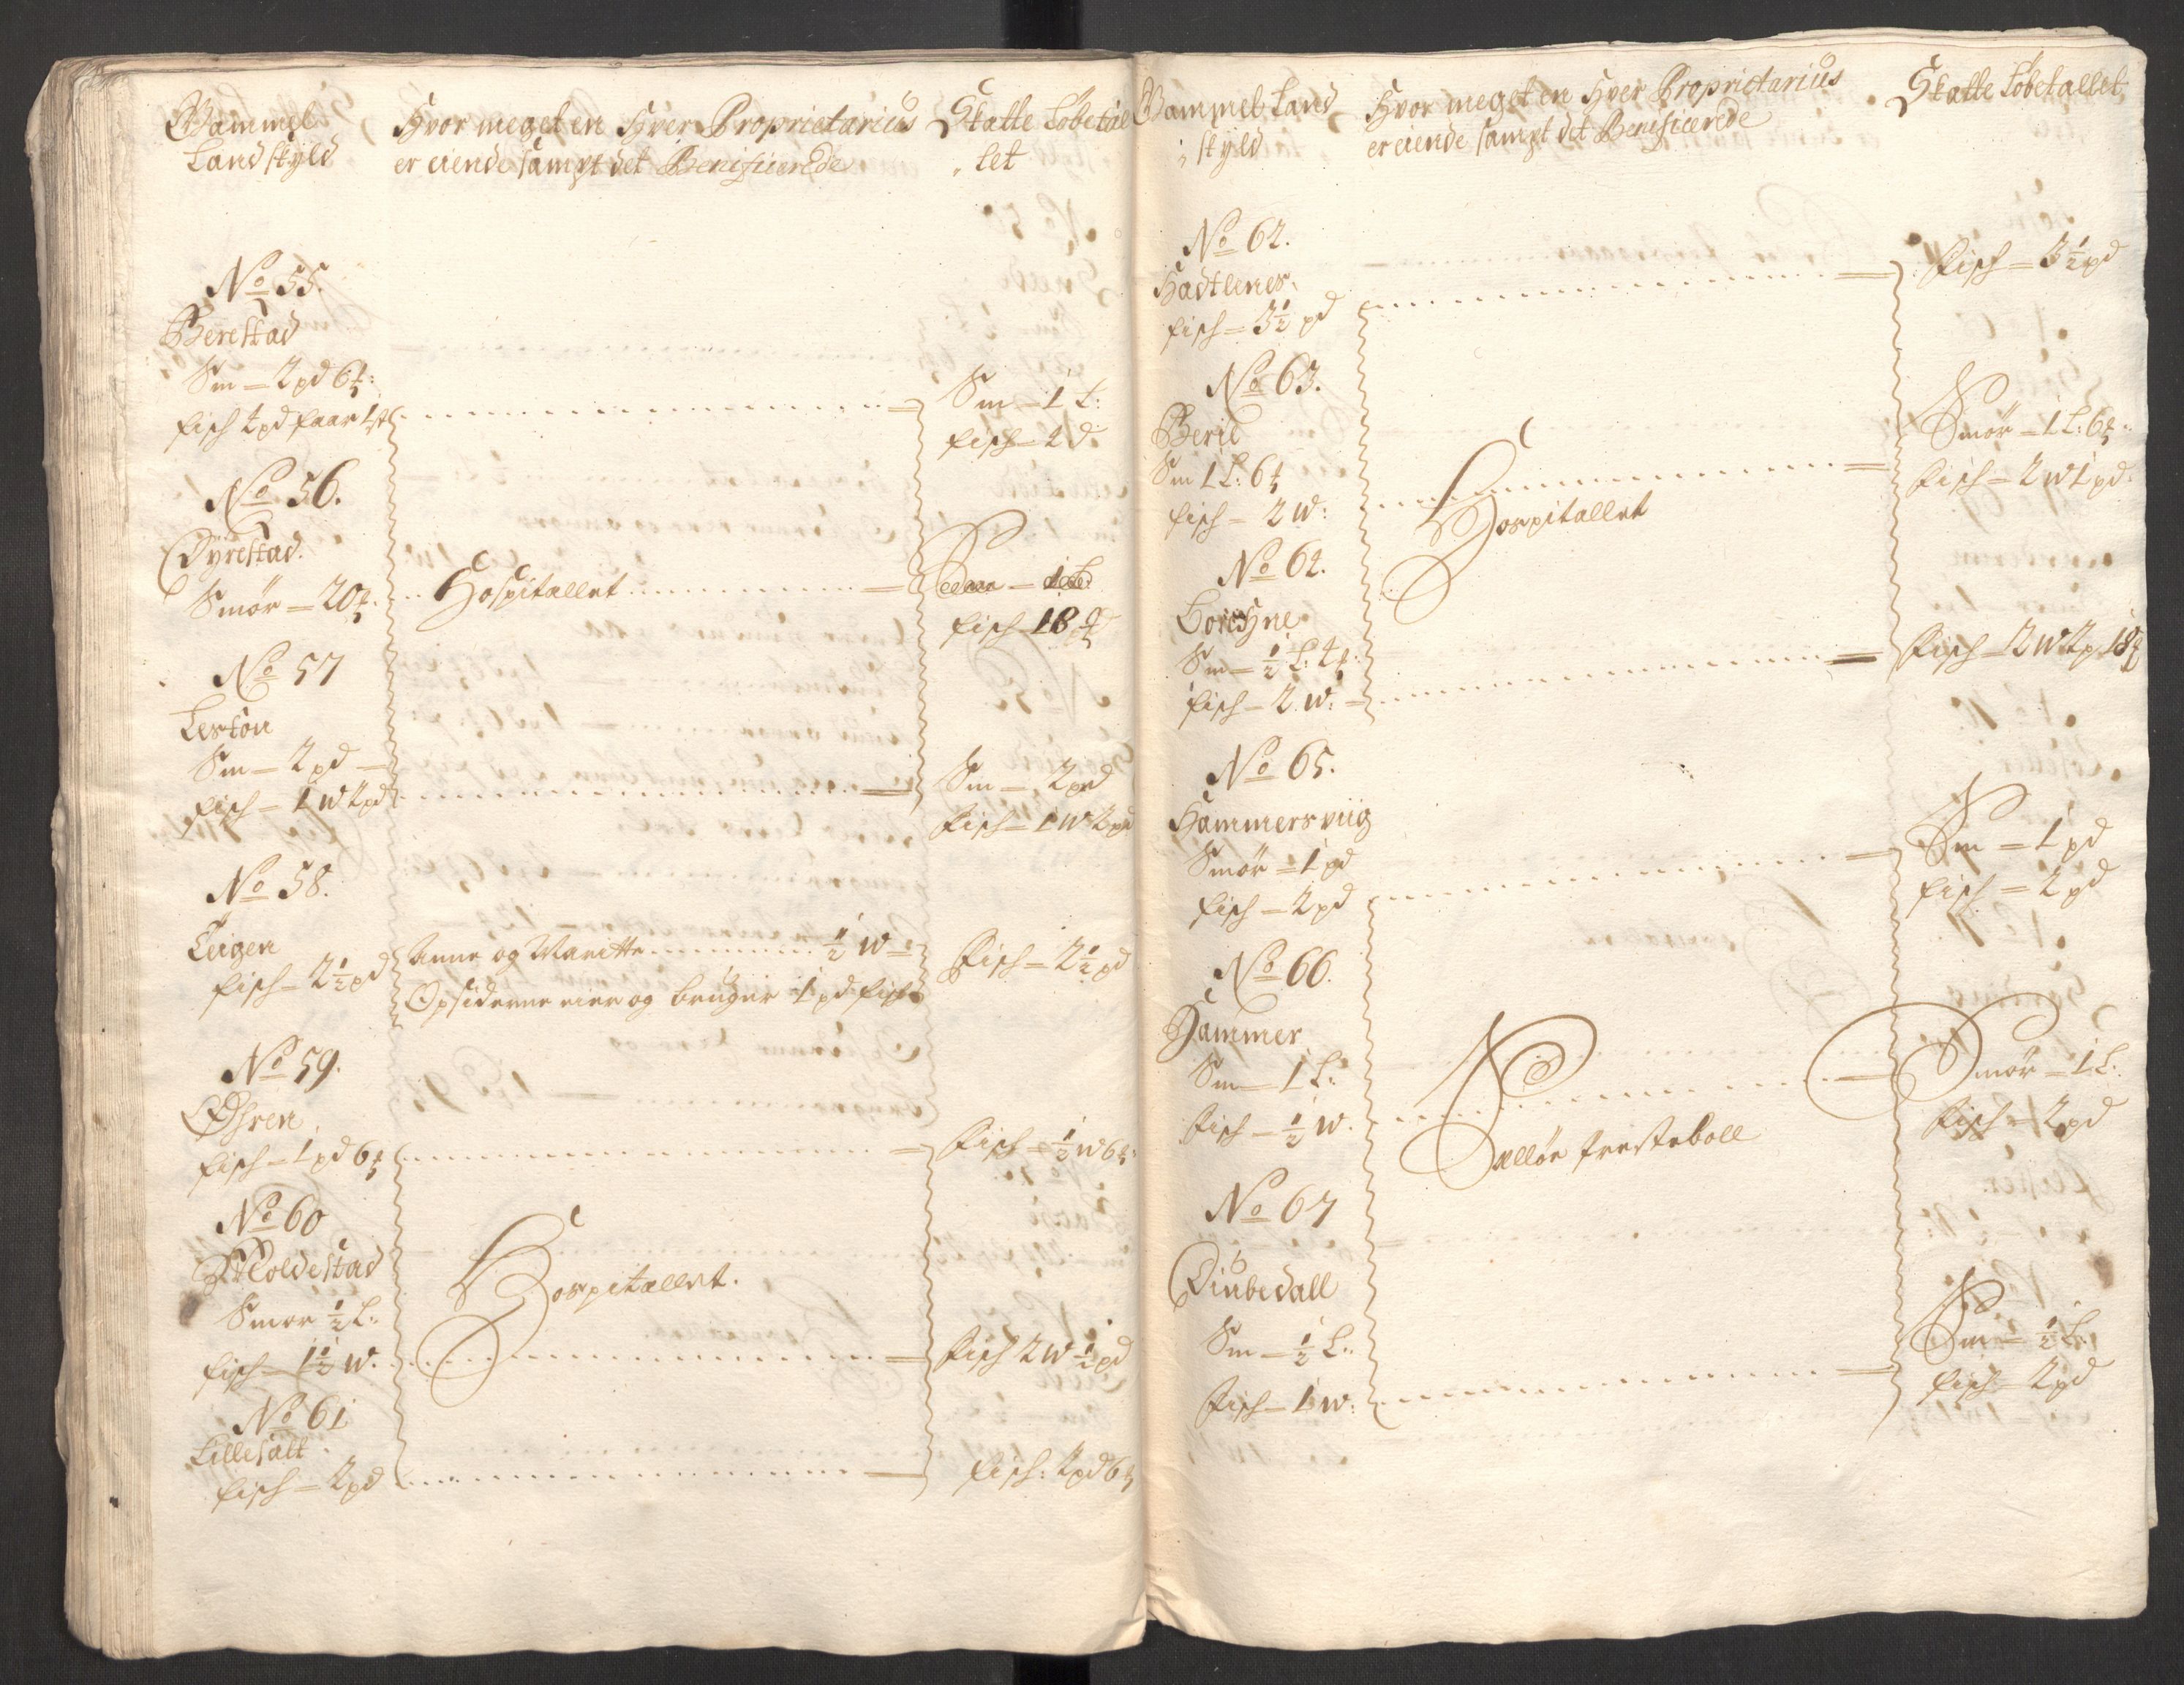 Gammel
Landskÿld
Hvor meget en Hver Proprietarius
er eiende sampt det Benificerede
Skatte Løbetal
let
No 55.
Berestad
Sm – 2 pd 6 ℔:
fisch 2 pd faar 1 st
Sm – 1 L:
fisch – 2 d
No 56.
Dyrestad.
Smør – 20 ℔.
Hospitallet
fisch 18 ℔
No 57
Leston
Sm – 2 pd
fisch – 1 W 2 pd
Sm – 2 pd
fisch – 1 W 2 pd
No 58.
Leigen
fisch – 2½ pd
Anne og Maritte ½ W
Opsiderne eier og bruger 1 pd fisch
Fisch – 2½ pd
No 59.
Øhren
fisch – 1 pd 6 ℔
Fisch – ½ W 6 ℔:
No 60
Moldestad
Smør ½ L:
fisch – 1½ W.
Hospitallet.
Fisch 2 W ½ pd
No 61
Lillesalt
fisch – 2 pd
fisch: 2 pd 6 ℔
Gammel Land
skÿld
Hvor meget en Hver Proprietarius
er eiende sampt det Benificerede
Skatte Løbetallet
No 62.
Hadtlenes.
fisch – 3½ pd
Fisch – 3½ pd
No 63.
Berie
Sm 1 L: 6 ℔
fisch – 2 W:
Hospitallet
Smør – 1 L: 6 ℔
Fisch – 2 W 1 pd.
No 62.
Sm – ½ L: 4 ℔:
fisch – 2 W:
Fisch – 2 W 2 p 18 ℔
No 65.
Hammersviig
Smør – 1 pd
fisch – 2 pd
Sm – 1 pd
fisch – 2 pd
No 66.
Hammer
Sm – 1 L:
Fisch – ½ W.
Sælløe Præsteboll
Smør – 1 L.
Fisch – 2 pd
No 67
Diubedall
Sm – ½ L:
Fisch – 1 W:
Sm – ½ L.
fisch – 2 pd